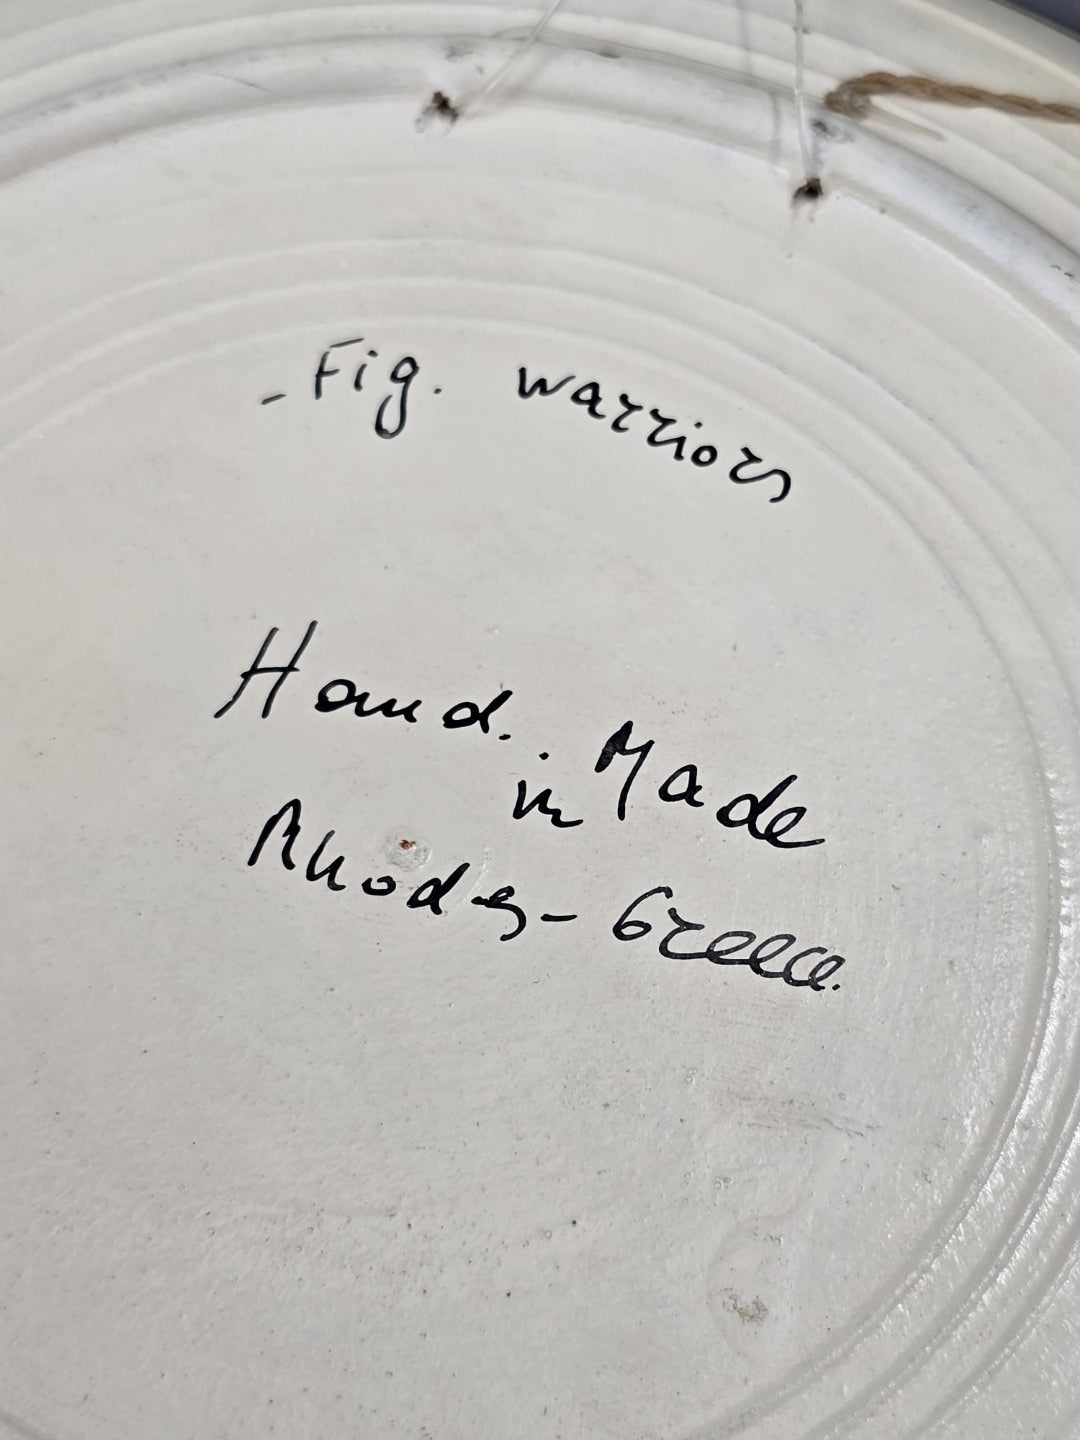 - Fig. warriors
Hand. Made
in
Rhodes - Greece.